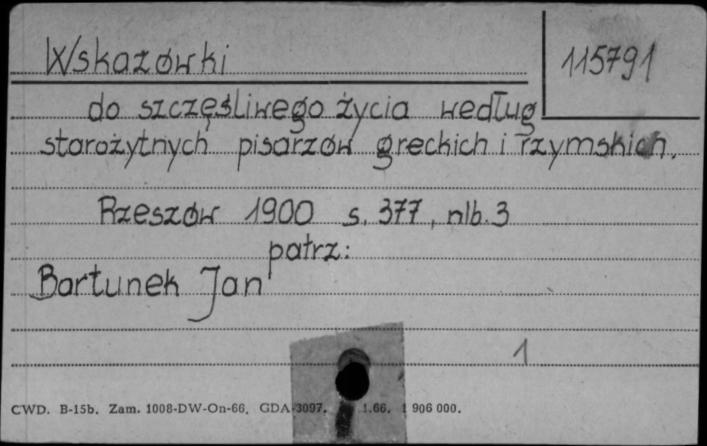 Wskazówki
115791
do szczęśliwego życia według
starożytnych pisarzów greckich i rzymskich.
Rzeszów 1900 s. 377, nlb. 3
patrz:
Bartunek Jan
1
CWD. B-15b. Zam. 1008-DW-On-66. GDA-3097. 1.66. 1 906 000.